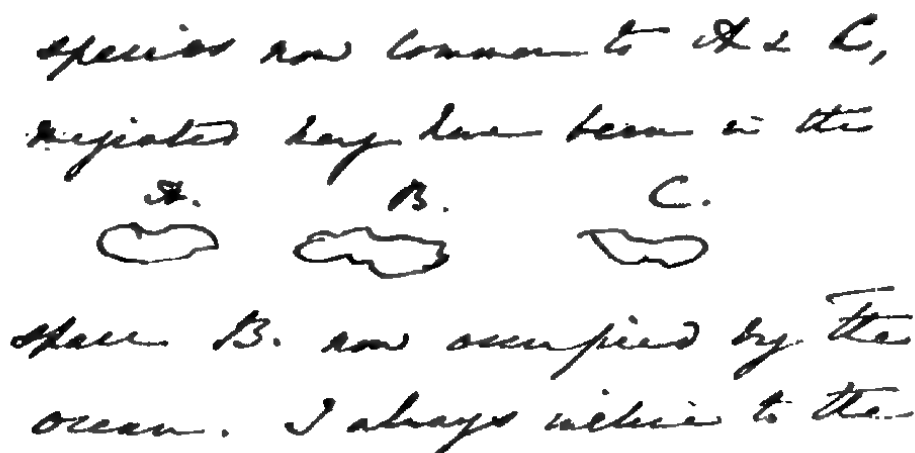 species now common to A & C,
migrated may have been in the
A. B. C.
space B. now occupied by the
ocean. I always incline to the